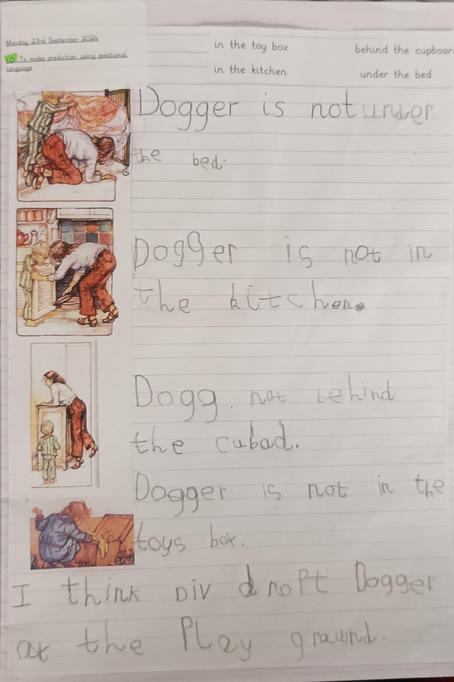 Monday 23rd September 2024
LO To make prediction using positional
language
in the toy box behind the cupboar
in the kitchen under the bed
Dogger is not under
the bed.
Dogger is not in
the kitchen.
Dogg not behind
the cubad.
Dogger is not in the
toys box.
I think Div dropt Dogger
at the Play grawnd.